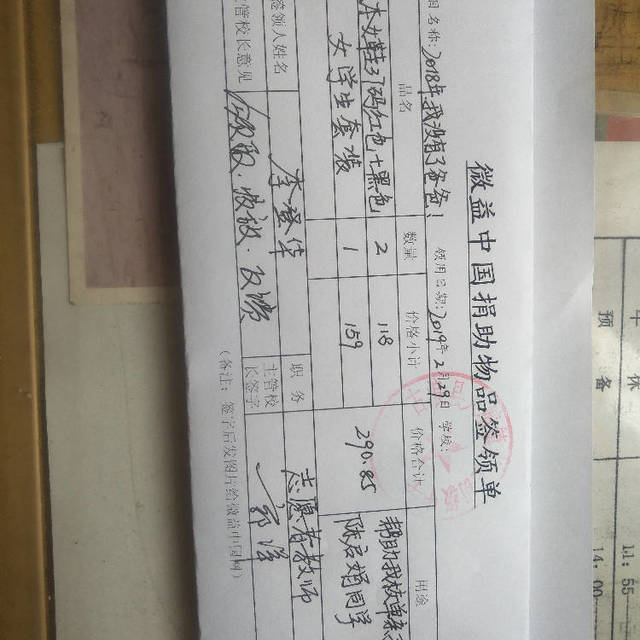 微益中国捐助物品签领单
名称:2018年我没有了爸爸! 领用日期:2019年2月29日 学校:
品名 数量 价格小计 价格合计 用途
本女鞋37码红色+黑色 2 118 290.85 帮助我校单亲
女学生套装 1 159
同学
签领人姓名 李登华 职务 志愿者教师
管校长意见 领取. 收讫. 反馈 主管校长签字
(备注:签字后发图片给微益中国网)
休
预备
11:55
14:00